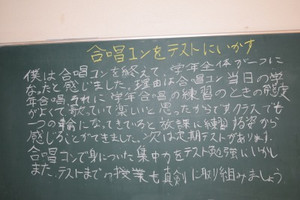 合唱コンをテストにいかす
僕は合唱コンを終えて、学年全体が一つに
なったと感じました。理由は合唱コン当日の学
年合唱、それに学年合唱の練習のときの態度
がよくて歌っていて楽しいと思ったからです。クラスでも一
つの輪になってきていると放課に練習する姿から
感じることができました。次は定期テストがあります。
合唱コンで身についた集中力をテスト勉強にいかし
また、テストまでの授業も真剣に取り組みましょう